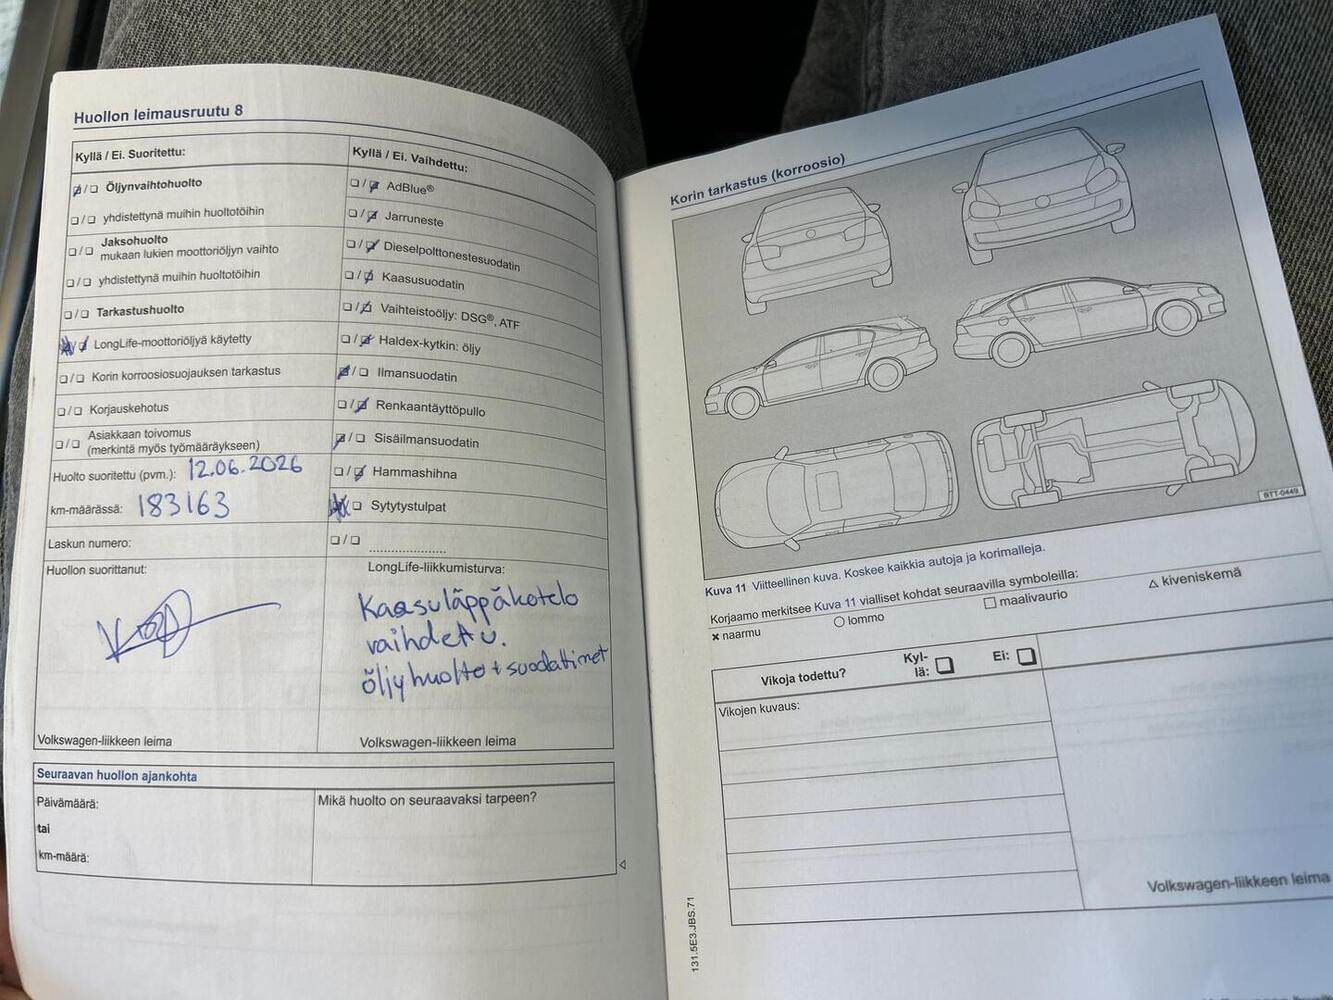 Huollon leimausruutu 8
Kyllä / Ei. Suoritettu:
Öljynvaihtohuolto
yhdistettynä muihin huoltotöihin
Jaksohuolto
mukaan lukien moottoriöljyn vaihto
yhdistettynä muihin huoltotöihin
Tarkastushuolto
LongLife-moottoriöljyä käytetty
Korin korroosiosuojauksen tarkastus
Korjauskehotus
Asiakkaan toivomus
(merkintä myös työmääräykseen)
Huolto suoritettu (pvm.): 12.06.2026
km-määrässä: 183163
Laskun numero:
Huollon suorittanut:
Volkswagen-liikkeen leima
Kyllä / Ei. Vaihdettu:
AdBlue®
Jarruneste
Dieselpolttonestesuodatin
Kaasusuodatin
Vaihteistoöljy: DSG®, ATF
Haldex-kytkin: öljy
Ilmansuodatin
Renkaantäyttöpullo
Sisäilmansuodatin
Hammashihna
Sytytystulpat
LongLife-liikkumisturva:
Kaasuläppäkotelo
vaihdettu.
öljyhuolto + suodattimet
Volkswagen-liikkeen leima
Seuraavan huollon ajankohta
Päivämäärä:
tai
km-määrä:
Mikä huolto on seuraavaksi tarpeen?
Korin tarkastus (korroosio)
BTT-0449
Kuva 11 Viitteellinen kuva. Koskee kaikkia autoja ja korimalleja.
Korjaamo merkitsee Kuva 11 vialliset kohdat seuraavilla symboleilla:
naarmu
lommo
maalivaurio
kiveniskemä
Vikoja todettu?
Kyl-
lä:
Ei:
Vikojen kuvaus:
Volkswagen-liikkeen leima
131.5E3.JBS.71